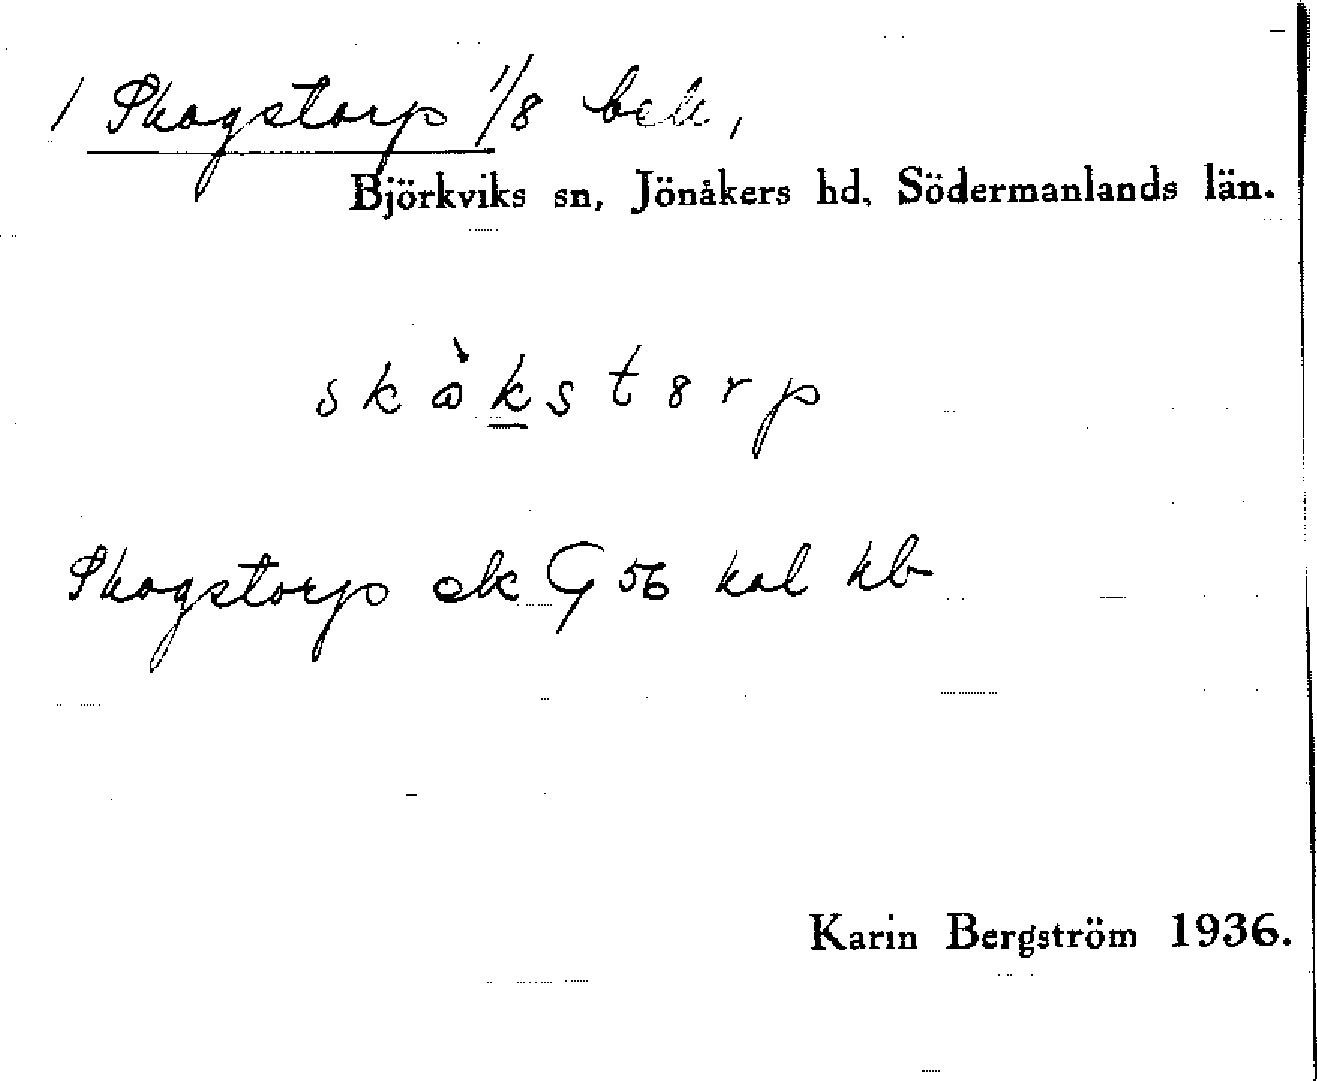 1 Skogstorp 1/8 beb,
Björkviks sn, Jönåkers hd, Södermanlands län.
skòkstorp
Skogstorp ek G 56 kal kb
Karin Bergström 1936.